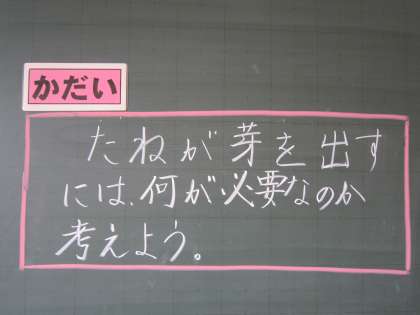 かだい
たねが芽を出す
には、何が必要なのか
考えよう。